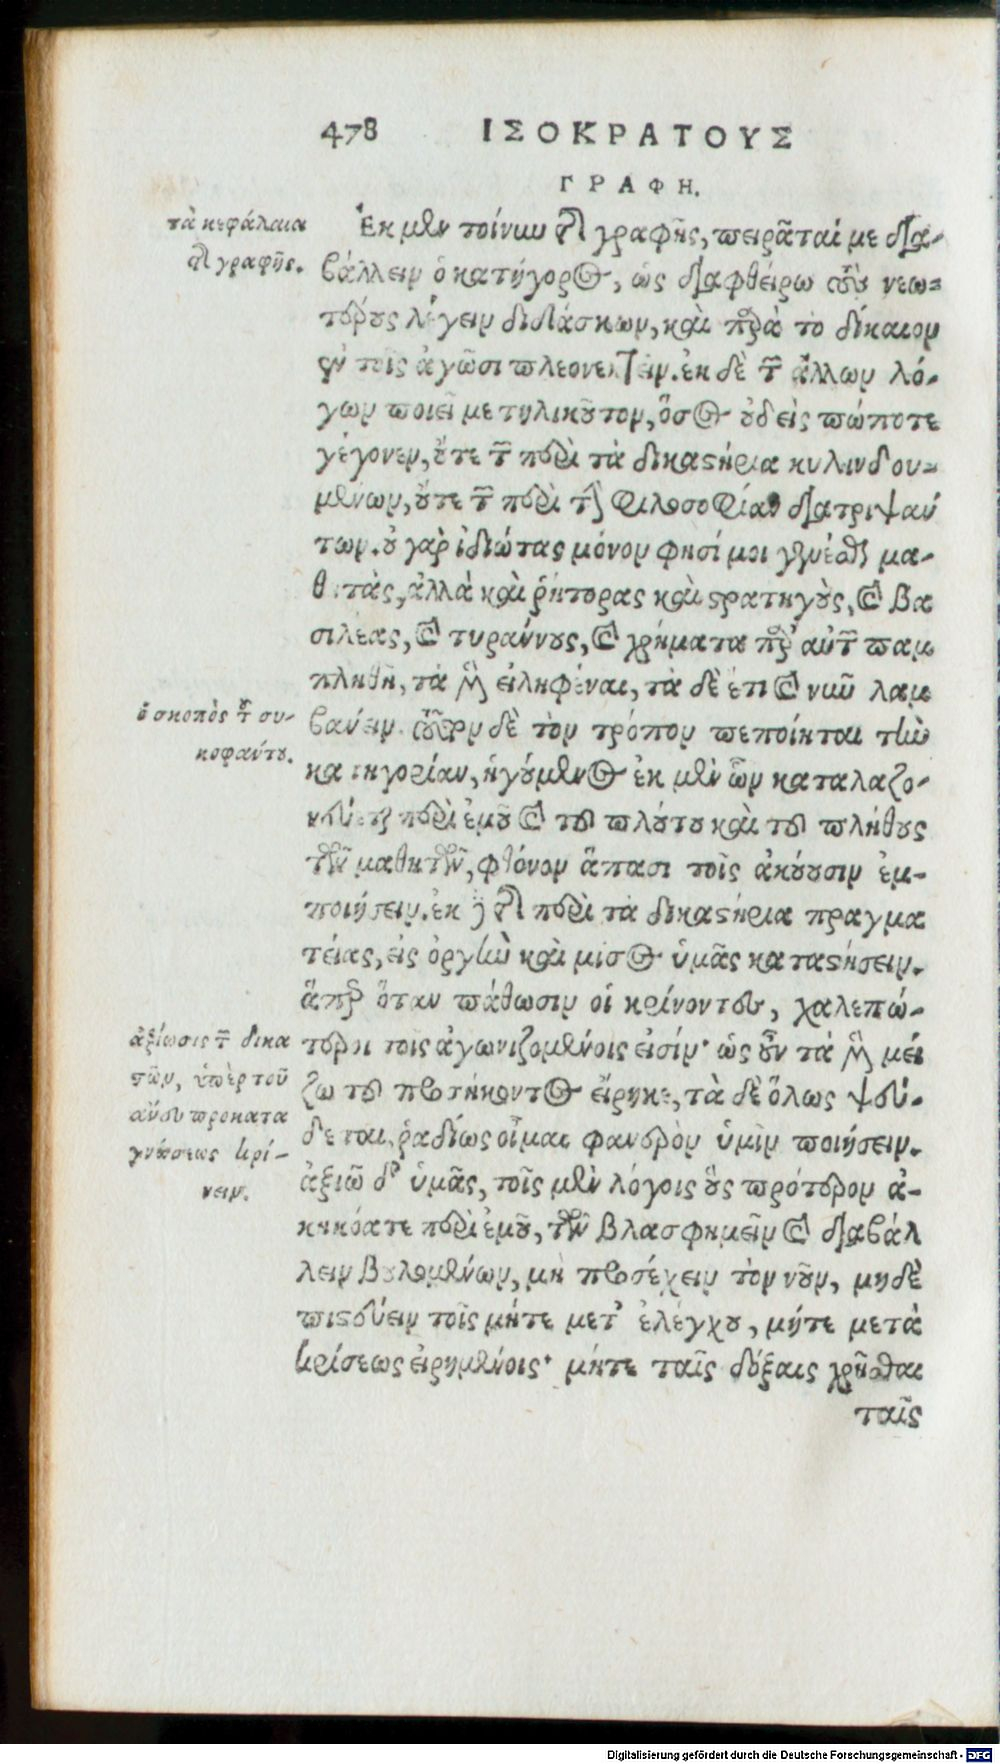 478 ΙΣΟΚΡΑΤΟΥΣ
ΓΡΑΦΗ.
τὰ κεφάλαια
τῆς γραφῆς.
Ἐκ μὲν τοίνυν τῆς γραφῆς, πειρᾶταί με δια-
βάλλειν ὁ κατήγορος, ὡς διαφθείρω τοὺς νεω-
τέρους λέγειν διδάσκων, καὶ παρὰ τὸ δίκαιον
ἐν τοῖς ἀγῶσι πλεονεκτεῖν. ἐκ δὲ τῶν ἄλλων λό-
γων ποιεῖ με τηλικοῦτον, ὅσος οὐδεὶς πώποτε
γέγονεν, οὔτε τῶν περὶ τὰ δικαστήρια κυλινδου-
μένων, οὔτε τῶν περὶ τὴν φιλοσοφίαν διατριψάν
των. οὐ γὰρ ἰδιώτας μόνον φησί μοι γεγενῆσθαι μα-
θητὰς, ἀλλὰ καὶ ῥήτορας καὶ στρατηγοὺς, καὶ βα
σιλέας, καὶ τυράννους, καὶ χρήματα παρ' αὐτῶν παμ
πληθῆ, τὰ μὲν εἰληφέναι, τὰ δὲ ἔτι καὶ νῦν λαμ
βάνειν. τοῦτον δὲ τὸν τρόπον πεποίηται τὴν
κατηγορίαν, ἡγούμενος ἐκ μὲν ὧν καταλαζο-
νεύεται περὶ ἐμοῦ καὶ τοῦ πλούτου καὶ τοῦ πλήθους
τῶν μαθητῶν, φθόνον ἅπασι τοῖς ἀκούουσιν ἐμ-
ποιήσειν. ἐκ δὲ τῆς περὶ τὰ δικαστήρια πραγμα
τείας, εἰς ὀργὴν καὶ μῖσος ὑμᾶς καταστήσειν.
ἅπερ ὅταν πάθωσιν οἱ κρίνοντες, χαλεπώ-
τεροι τοῖς ἀγωνιζομένοις εἰσίν· ὡς οὖν τὰ μὲν μεί
ζω τοῦ προσήκοντος εἴρηκε, τὰ δὲ ὅλως ψεύ-
δεται, ῥαδίως οἶμαι φανερὸν ὑμῖν ποιήσειν.
ἀξιῶ δ' ὑμᾶς, τοῖς μὲν λόγοις οὓς πρότερον ἀ-
κηκόατε περὶ ἐμοῦ, τῶν βλασφημεῖν καὶ διαβάλ
λειν βουλομένων, μὴ προσέχειν τὸν νοῦν, μηδὲ
πιστεύειν τοῖς μήτε μετ' ἐλέγχου, μήτε μετὰ
κρίσεως εἰρημένοις· μήτε ταῖς δόξαις χρῆσθαι
ταῖς
ὁ σκοπὸς τοῦ συ-
κοφάντου.
ἀξίωσις τῶν δικα
στῶν, ὑπὲρ τοῦ
ἄνευ προκατα
γνώσεως κρί-
νειν.
Digitalisierung gefördert durch die Deutsche Forschungsgemeinschaft - DFG